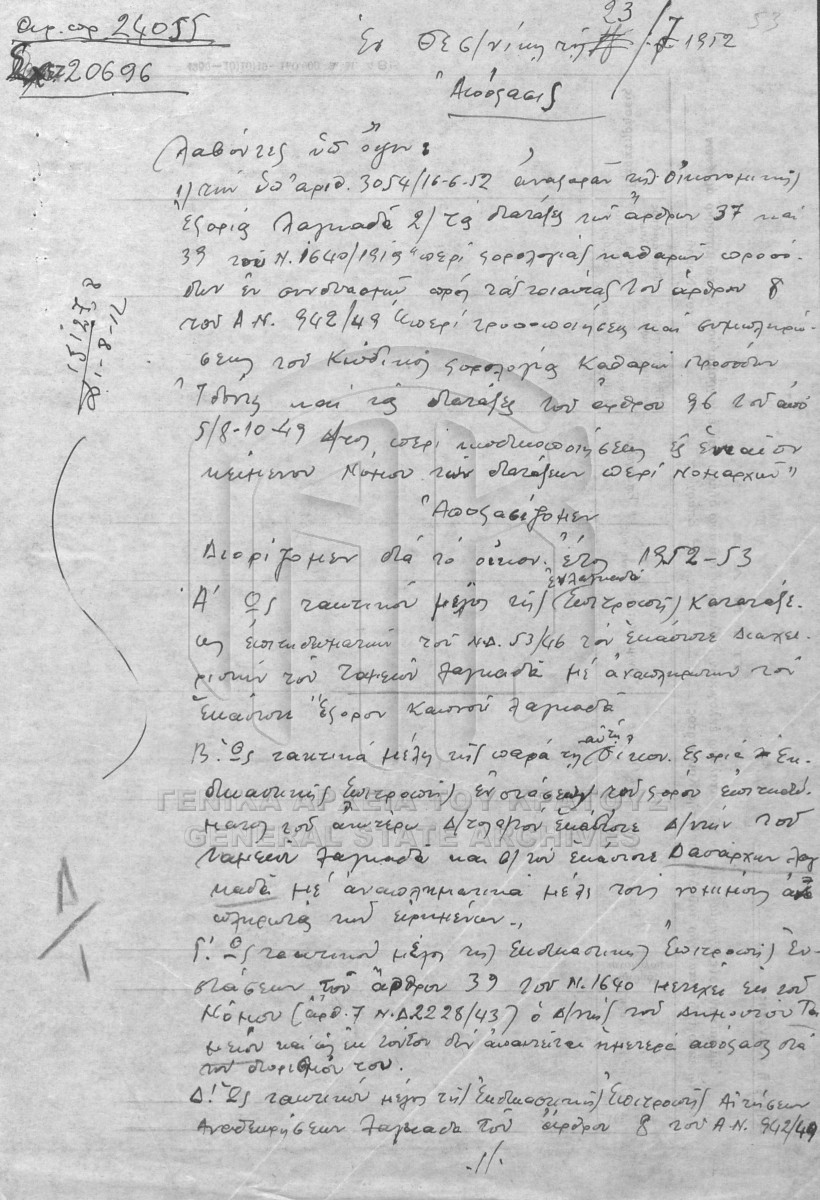 Αρ. πρ 24055
20696
Ἐν Θεσ/νίκῃ τῇ 23/7/1952
53
Ἀπόφασις
Λαβόντες ὑπ' ὄψιν:
1) τὴν ὑπ' ἀριθ. 3054/16-6-52 ἀναφορὰν τῆς Οἰκονομικῆς
Ἐφορίας Λαγκαδᾶ 2/ τὰς διατάξεις τῶν ἄρθρων 37 καὶ
39 τοῦ Ν. 1640/1919 "περὶ φορολογίας καθαρῶν προσό-
δων ἐν συνδυασμῷ πρὸς τὰς τοιαύτας τοῦ ἄρθρου 8
τοῦ Α.Ν. 942/49 "περὶ τροποποιήσεως καὶ συμπληρώ-
σεως τοῦ Κώδικος φορολογίας Καθαρῶν Προσόδων
καὶ τὰς διατάξεις τοῦ ἄρθρου 96 τοῦ ἀπὸ
5/8-10-49 Δ/τος περὶ κωδικοποιήσεως εἰς ἑνιαῖον
κείμενον Νόμου τῶν διατάξεων περὶ Νομαρχῶν"
Ἀποφασίζομεν
Διορίζομεν διὰ τὸ οἰκον. ἔτος 1952-53
ἐν Λαγκαδᾷ
Α' Ὡς τακτικὸν μέλος τῆς Ἐπιτροπῆς Κατατάξε-
ως ἐπιτηδευματιῶν τοῦ Ν.Δ. 53/46 τὸν ἑκάστοτε Διαχει-
ριστὴν τοῦ Ταμείου Λαγκαδᾶ μὲ ἀναπληρωτὴν τὸν
ἑκάστοτε Ἔφορον Καπνοῦ Λαγκαδᾶ
Β. Ὡς τακτικὰ μέλη τῆς παρὰ τῇ αὐτῇ Οἰκον. Ἐφορίᾳ Ἐκ-
δικαστικῆς Ἐπιτροπῆς ἐνστάσεων τοῦ φόρου ἐπιτηδεύ-
ματος τοῦ ἀνωτέρω Δ/τος α/ τὸν ἑκάστοτε Δ/ντὴν τοῦ
Ταμείου Λαγκαδᾶ καὶ β/ τὸν ἑκάστοτε Δασάρχην Λαγ
καδᾶ μὲ ἀναπληρωματικὰ μέλη τοὺς νομίμους ἀνα
πληρωτὰς τῶν εἰρημένων.,
Γ'. Ὡς τακτικὸν μέλος τῆς Ἐκδικαστικῆς Ἐπιτροπῆς Ἐν-
στάσεων τοῦ ἄρθρου 39 τοῦ Ν. 1640 μετέχει ἐκ τοῦ
Νόμου (ἄρθ. 7 Ν.Δ 2228/43) ὁ Δ/ντὴς τοῦ Δημοσίου Τα
μείου καὶ ὡς ἐκ τούτου δὲν ἀπαιτεῖται ἡμετέρα ἀπόφασις διὰ
τὸν διορισμόν του.
Δ! Ὡς τακτικὸν μέλος τῆς Ἐκδικαστικῆς Ἐπιτροπῆς Αἰτήσεων
Ἀναθεωρήσεων Λαγκαδᾶ τοῦ ἄρθρου 8 τοῦ Α.Ν. 942/49
./.
ΓΕΝΙΚΑ ΑΡΧΕΙΑ ΤΟΥ ΚΡΑΤΟΥΣ
GENERAL STATE ARCHIVES